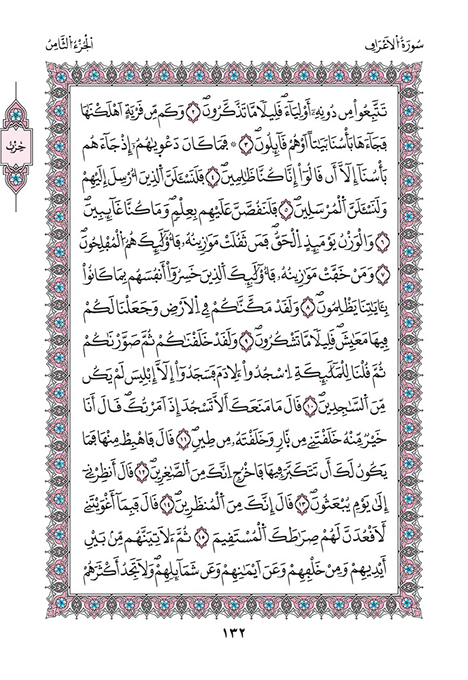 سُورَةُ الْأَعْرَافِ
الْجُزْءُ الثَّامِنُ
حزب
تَتَّبِعُواْ مِن دُونِهِۦٓ أَوْلِيَآءَ قَلِيلًا مَّا تَذَّكَّرُونَ ٢ وَكَم مِّن قَرْيَةٍ اَهْلَكْنَٰهَا
فَجَآءَهَا بَأْسُنَا بَيَٰتًا اَوْ هُمْ قَآئِلُونَ ٣ فَمَا كَانَ دَعْوٜىٰهُمُۥٓ إِذْ جَآءَهُم
بَأْسُنَآ إِلَّآ أَن قَالُوٓاْ إِنَّا كُنَّا ظَٰلِمِينَ ٤ فَلَنَسْـَٔلَنَّ ٱلذِينَ أُرْسِلَ إِلَيْهِمْ
وَلَنَسْـَٔلَنَّ ٱلْمُرْسَلِينَ ٥ فَلَنَقُصَّنَّ عَلَيْهِم بِعِلْمٍ وَمَا كُنَّا غَآئِبِينَ
٦ وَالْوَزْنُ يَوْمَئِذٍ اِلْحَقُّ فَمَن ثَقُلَتْ مَوَٰزِينُهُۥ فَأُوْلَٰٓئِكَ هُمُ ٱلْمُفْلِحُونَ
٧ وَمَنْ خَفَّتْ مَوَٰزِينُهُۥ فَأُوْلَٰٓئِكَ ٱلذِينَ خَسِرُوٓاْ أَنفُسَهُم بِمَا كَانُواْ
بِـَٔايَٰتِنَا يَظْلِمُونَ ٨ وَلَقَدْ مَكَّنَّٰكُمْ فِے اِلَارْضِ وَجَعَلْنَا لَكُمْ
فِيهَا مَعَٰيِشَ قَلِيلًا مَّا تَشْكُرُونَ ٩ وَلَقَدْ خَلَقْنَٰكُمْ ثُمَّ صَوَّرْنَٰكُمْ
ثُمَّ قُلْنَا لِلْمَلَٰٓئِكَةِ اِ۟سْجُدُواْ لِأٓدَمَ فَسَجَدُوٓاْ إِلَّآ إِبْلِيسَ لَمْ يَكُن
مِّنَ ٱلسَّٰجِدِينَ ١٠ قَالَ مَا مَنَعَكَ أَلَّا تَسْجُدَ إِذَ اَمَرْتُكَ قَالَ أَنَا
خَيْرٌ مِّنْهُ خَلَقْتَنِے مِن نَّارٍ وَخَلَقْتَهُۥ مِن طِينٍ ١١ قَالَ فَاهْبِطْ مِنْهَا فَمَا
يَكُونُ لَكَ أَن تَتَكَبَّرَ فِيهَا فَاخْرُجِ اِنَّكَ مِنَ ٱلصَّٰغِرِينَ ١٢ قَالَ أَنظِرْنِےٓ
إِلَىٰ يَوْمِ يُبْعَثُونَ ١٣ قَالَ إِنَّكَ مِنَ ٱلْمُنظَرِينَ ١٤ قَالَ فَبِمَآ أَغْوَيْتَنِے
لَأَقْعُدَنَّ لَهُمْ صِرَٰطَكَ ٱلْمُسْتَقِيمَ ١٥ ثُمَّ لَأٓتِيَنَّهُم مِّنۢ بَيْنِ
أَيْدِيهِمْ وَمِنْ خَلْفِهِمْ وَعَنَ اَيْمَٰنِهِمْ وَعَن شَمَآئِلِهِمْ وَلَا تَجِدُ أَكْثَرَهُمْ
١٣٢